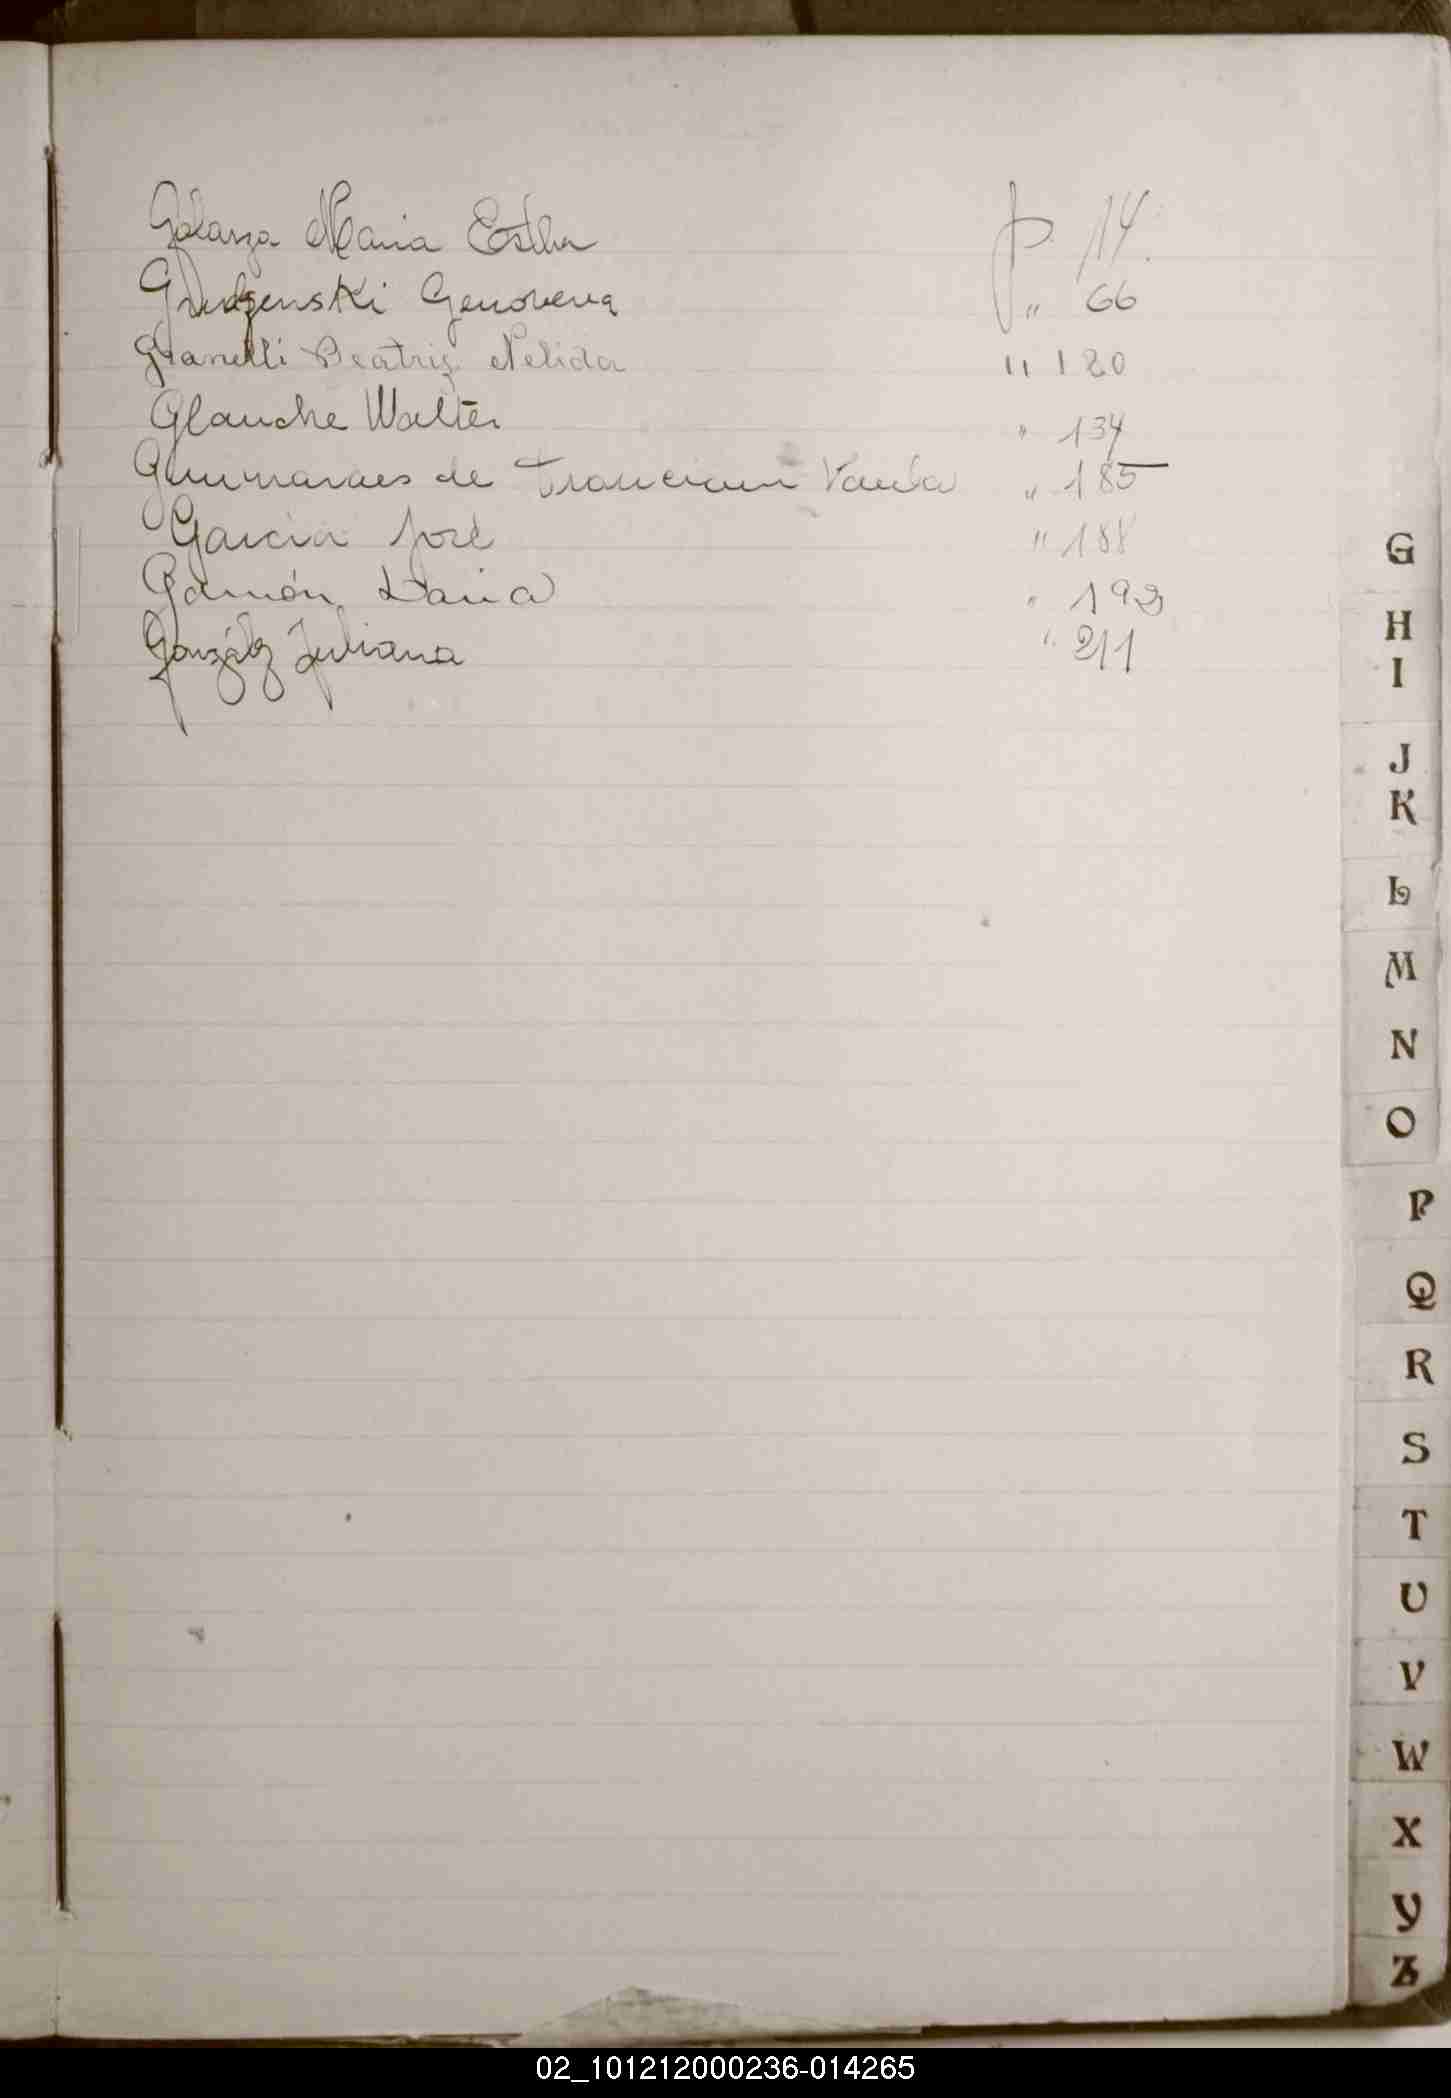 Galarza Maria Esther p. 14.
Grudzenski Genoveva " 66
Granelli Beatriz Nelida " 120
Glauche Walter " 134
Guimaraes de Vanda " 185
Garcia José " 188
Gamón Maria " 193
González Juliana " 211
G
H
I
J
K
L
M
N
O
P
Q
R
S
T
U
V
W
X
Y
Z
02_101212000236-014265